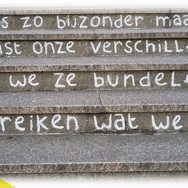 s zo bijzonder maa
ist onze verschill
we ze bundel
reiken wat we